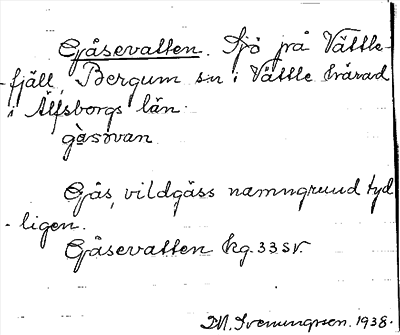 Gåsevatten. Sjö på Vättle-
fjäll, Bergum sn i Vättle härad
i Älfsborgs län.
gåsvan
Gås, vildgäss namngrund tyd
-ligen.
Gåsevatten kg. 33 SV.
M. Svenungsson. 1938.